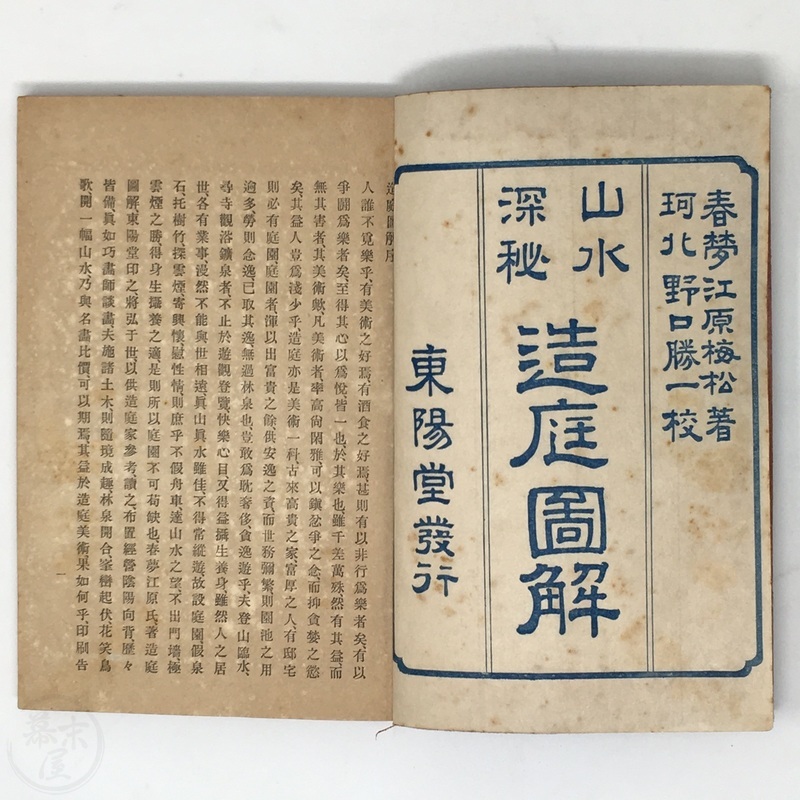 春夢江原梅松著
珂北野口勝一校
山水
深秘
造庭圖解
東陽堂發行
造庭圖解序
人誰不覓樂乎、有美術之好焉、有酒食之好焉、甚則有以非行爲樂者矣、有以
爭鬪爲樂者矣、至得其心以爲悅、皆一也、於其樂也、雖千差萬殊、然有其益、而
無其害者、其美術歟、凡美術者、率高尙閑雅、可以鎭忿爭之念、而抑貪婪之慾
矣、其益人豈爲淺少乎、造庭亦是美術一科、古來高貴之家、富厚之人、有邸宅
則必有庭園、庭園者、渾以出富貴之餘、供安逸之資、而世務彌繁、則園池之用
逾多、勞則念逸已、取其逸、無過林泉也、豈敢爲耽奢侈、貪逸遊乎、夫登山臨水、
尋寺觀浴鑛泉者、不止於遊觀登覽、快樂心目、又得益攝生養身、雖然人之居
世、各有業事、漫然不能與世相遺、眞山眞水雖佳、不得常縱遊、故設庭園、假泉
石、托樹竹、探雲煙、寄興懷、慰性情、則庶乎不假舟車、遂山水之望、不出門墻、極
雲煙之勝、得身生攝養之適、是則所以庭園不可苟缺也、春夢江原氏、著造庭
圖解、東陽堂印之、將弘于世、以供造庭家參考、讀之、布置經營、陰陽向背、歷々
皆備、眞如巧畫師談畫、夫施諸土木、則隨境成趣、林泉開合、峯巒起伏、花笑鳥
歌、開一幅山水、乃與名畫比價、可以期焉、其益於造庭美術果如何乎、印刷告
一
幕末屋